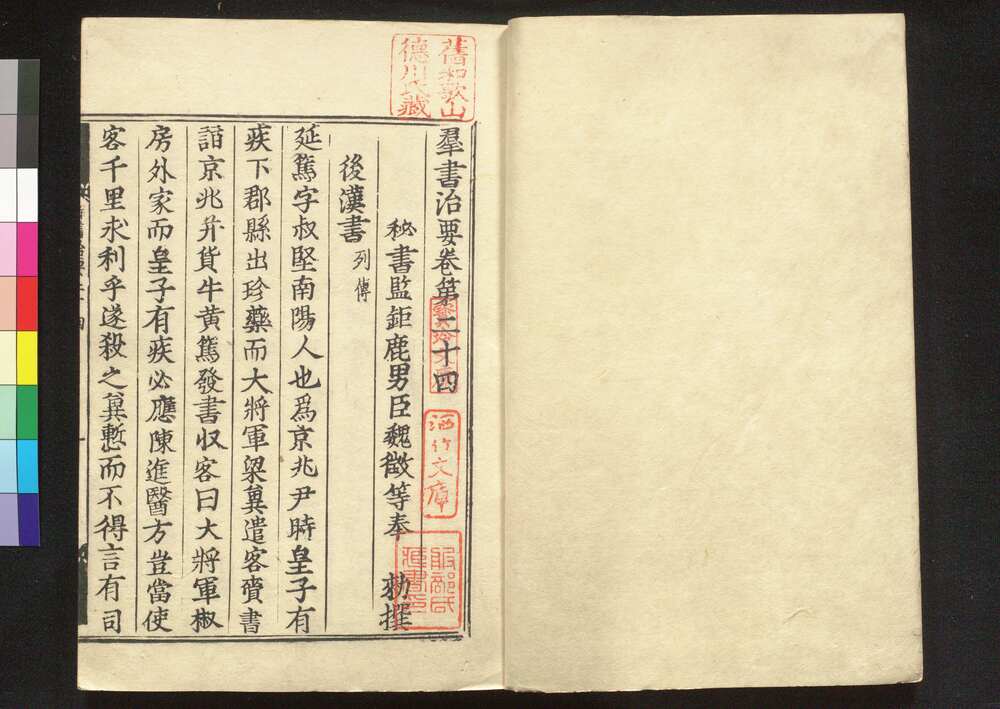 羣書治要卷第二十四
秘書監鉅鹿男臣魏徵等奉 勑撰
後漢書 列傳
延篤字叔堅南陽人也爲京兆尹時皇子有
疾下郡縣出珍藥而大將軍梁冀遣客賷書
詣京兆幷貨牛黄篤發書収客曰大將軍椒
房外家而皇子有疾必應陳進醫方豈當使
客千里求利乎遂殺之冀慙而不得言有司
舊和歌山
德川氏藏
洒竹文庫
服部氏